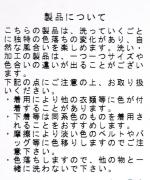 製品について
こちらの製品は、洗っていくごと
に独特の色落ちの変化があり、自
然な風合いを楽しめます。洗い・
加工の製品は、一つ一つサイズや
色合いの違いが出ることがござい
ます。
下記の点にご注意の上、お取り扱
いください。
・着用によより他の衣類等に色が付
着することがあります。
・下着等は同系色のものを着用さ
れることをおすすめします。
・摩擦により淡い色のベルトやバッ
グ等に色移りしますのでご注
意下さい。
・色落ちしますので、他の物と一
緒に洗わないで下さい。